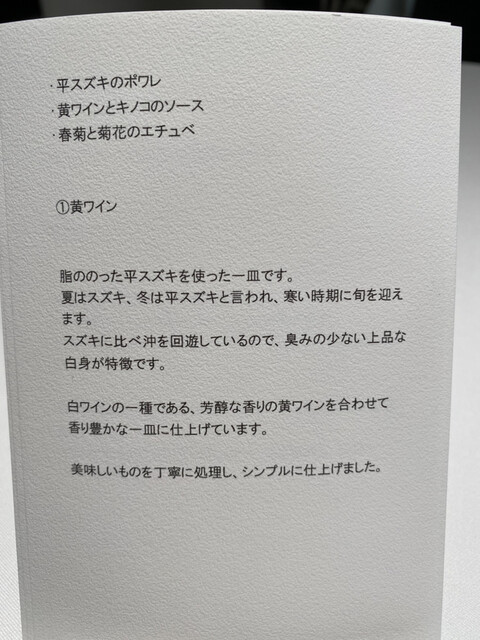 ・平スズキのポワレ
・黄ワインとキノコのソース
・春菊と菊花のエチュベ
①黄ワイン
脂ののった平スズキを使った一皿です。
夏はスズキ、冬は平スズキと言われ、寒い時期に旬を迎え
ます。
スズキに比べ沖を回遊しているので、臭みの少ない上品な
白身が特徴です。
白ワインの一種である、芳醇な香りの黄ワインを合わせて
香り豊かな一皿に仕上げています。
美味しいものを丁寧に処理し、シンプルに仕上げました。